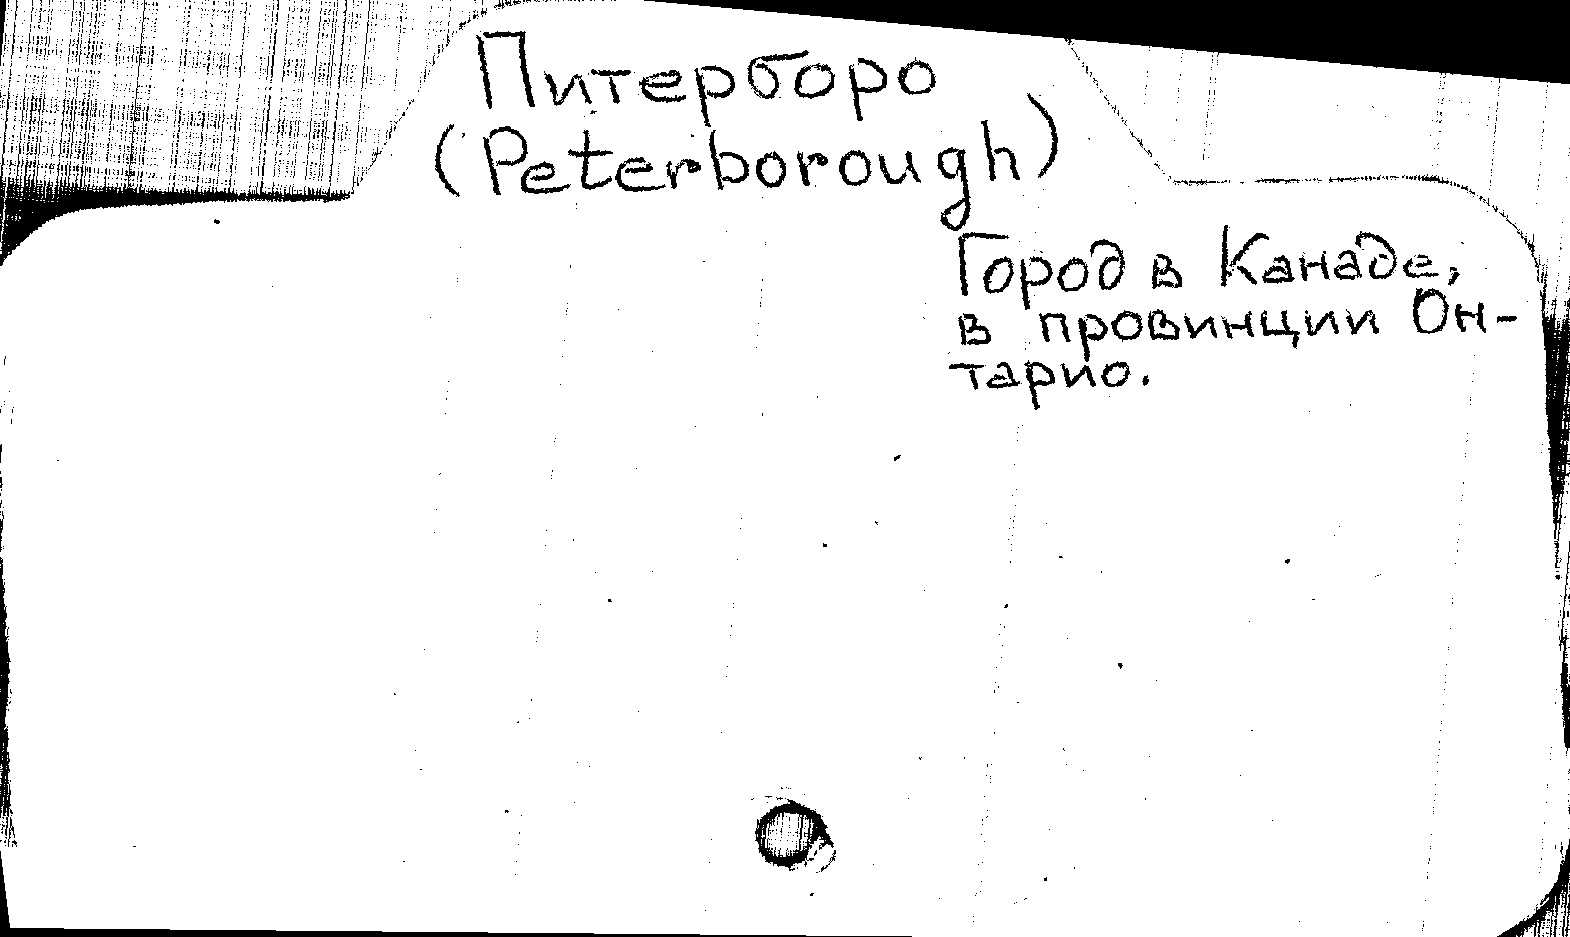 Питерборо
(Peterborough)
Город в Канаде,
в провинции Он-
тарио.